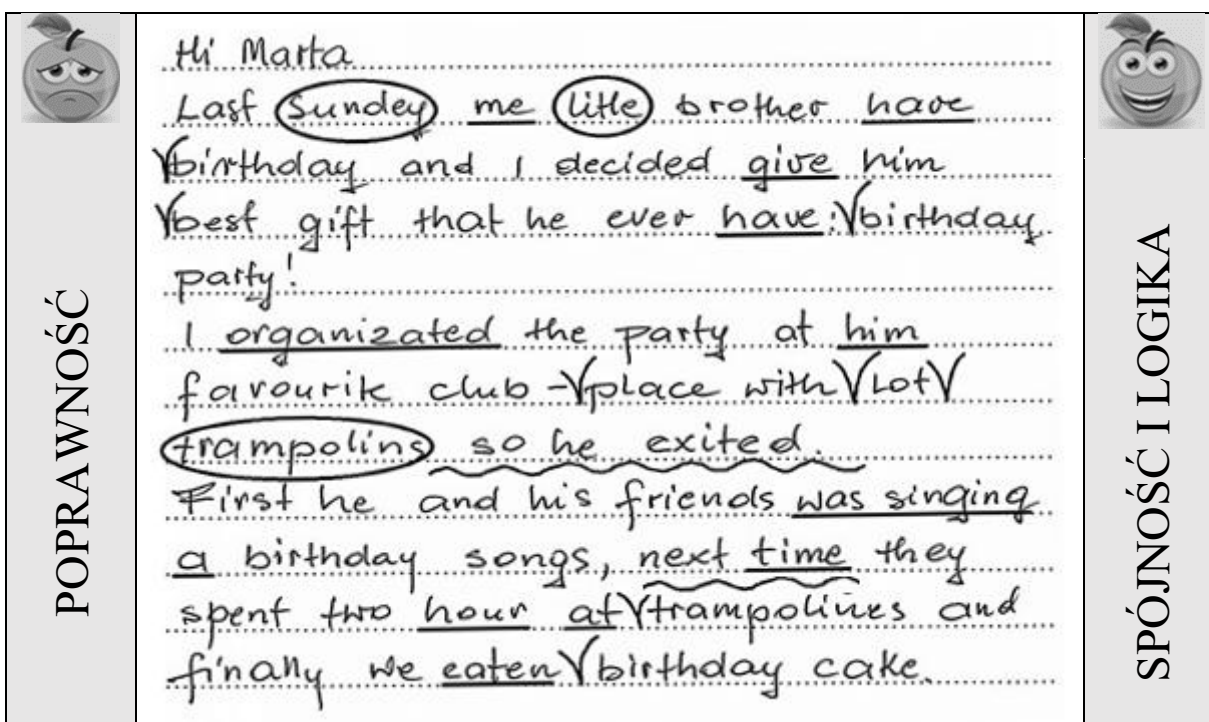 POPRAWNOŚĆ
Hi Marta
Last Sundey me litle brother have
birthday and I decided give him
best gift that he ever have: birthday
party!
I organizated the party at him
favourik club - place with Lot
trampolins so he exited.
First he and his friends was singing
a birthday songs, next time they
spent two hour at trampolines and
finally we eaten birthday cake.
SPÓJNOŚĆ I LOGIKA